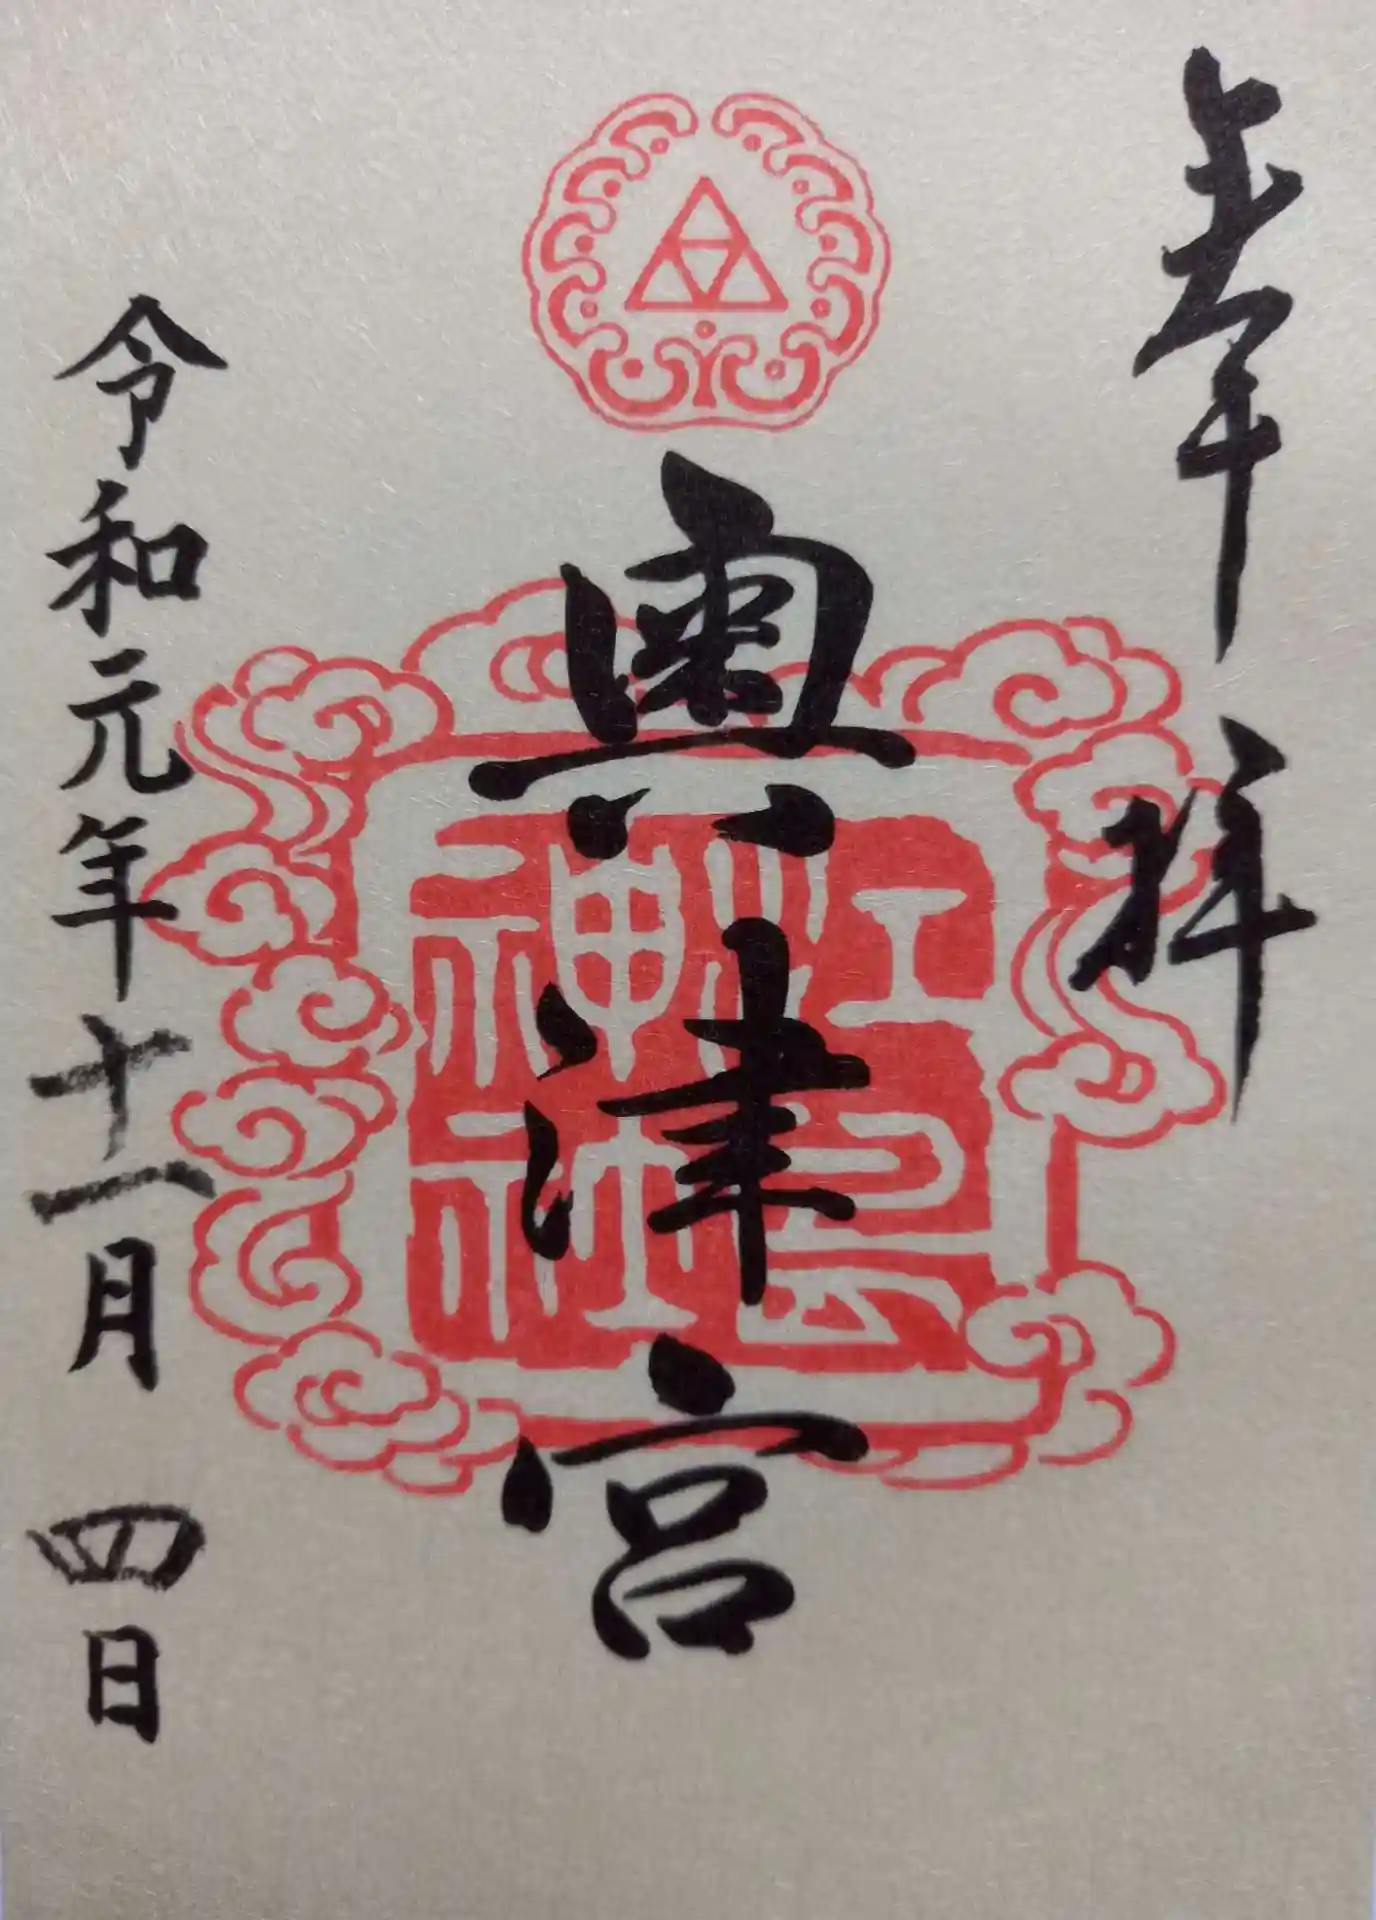 奉拝
奥津宮
江島神社
令和元年十一月四日